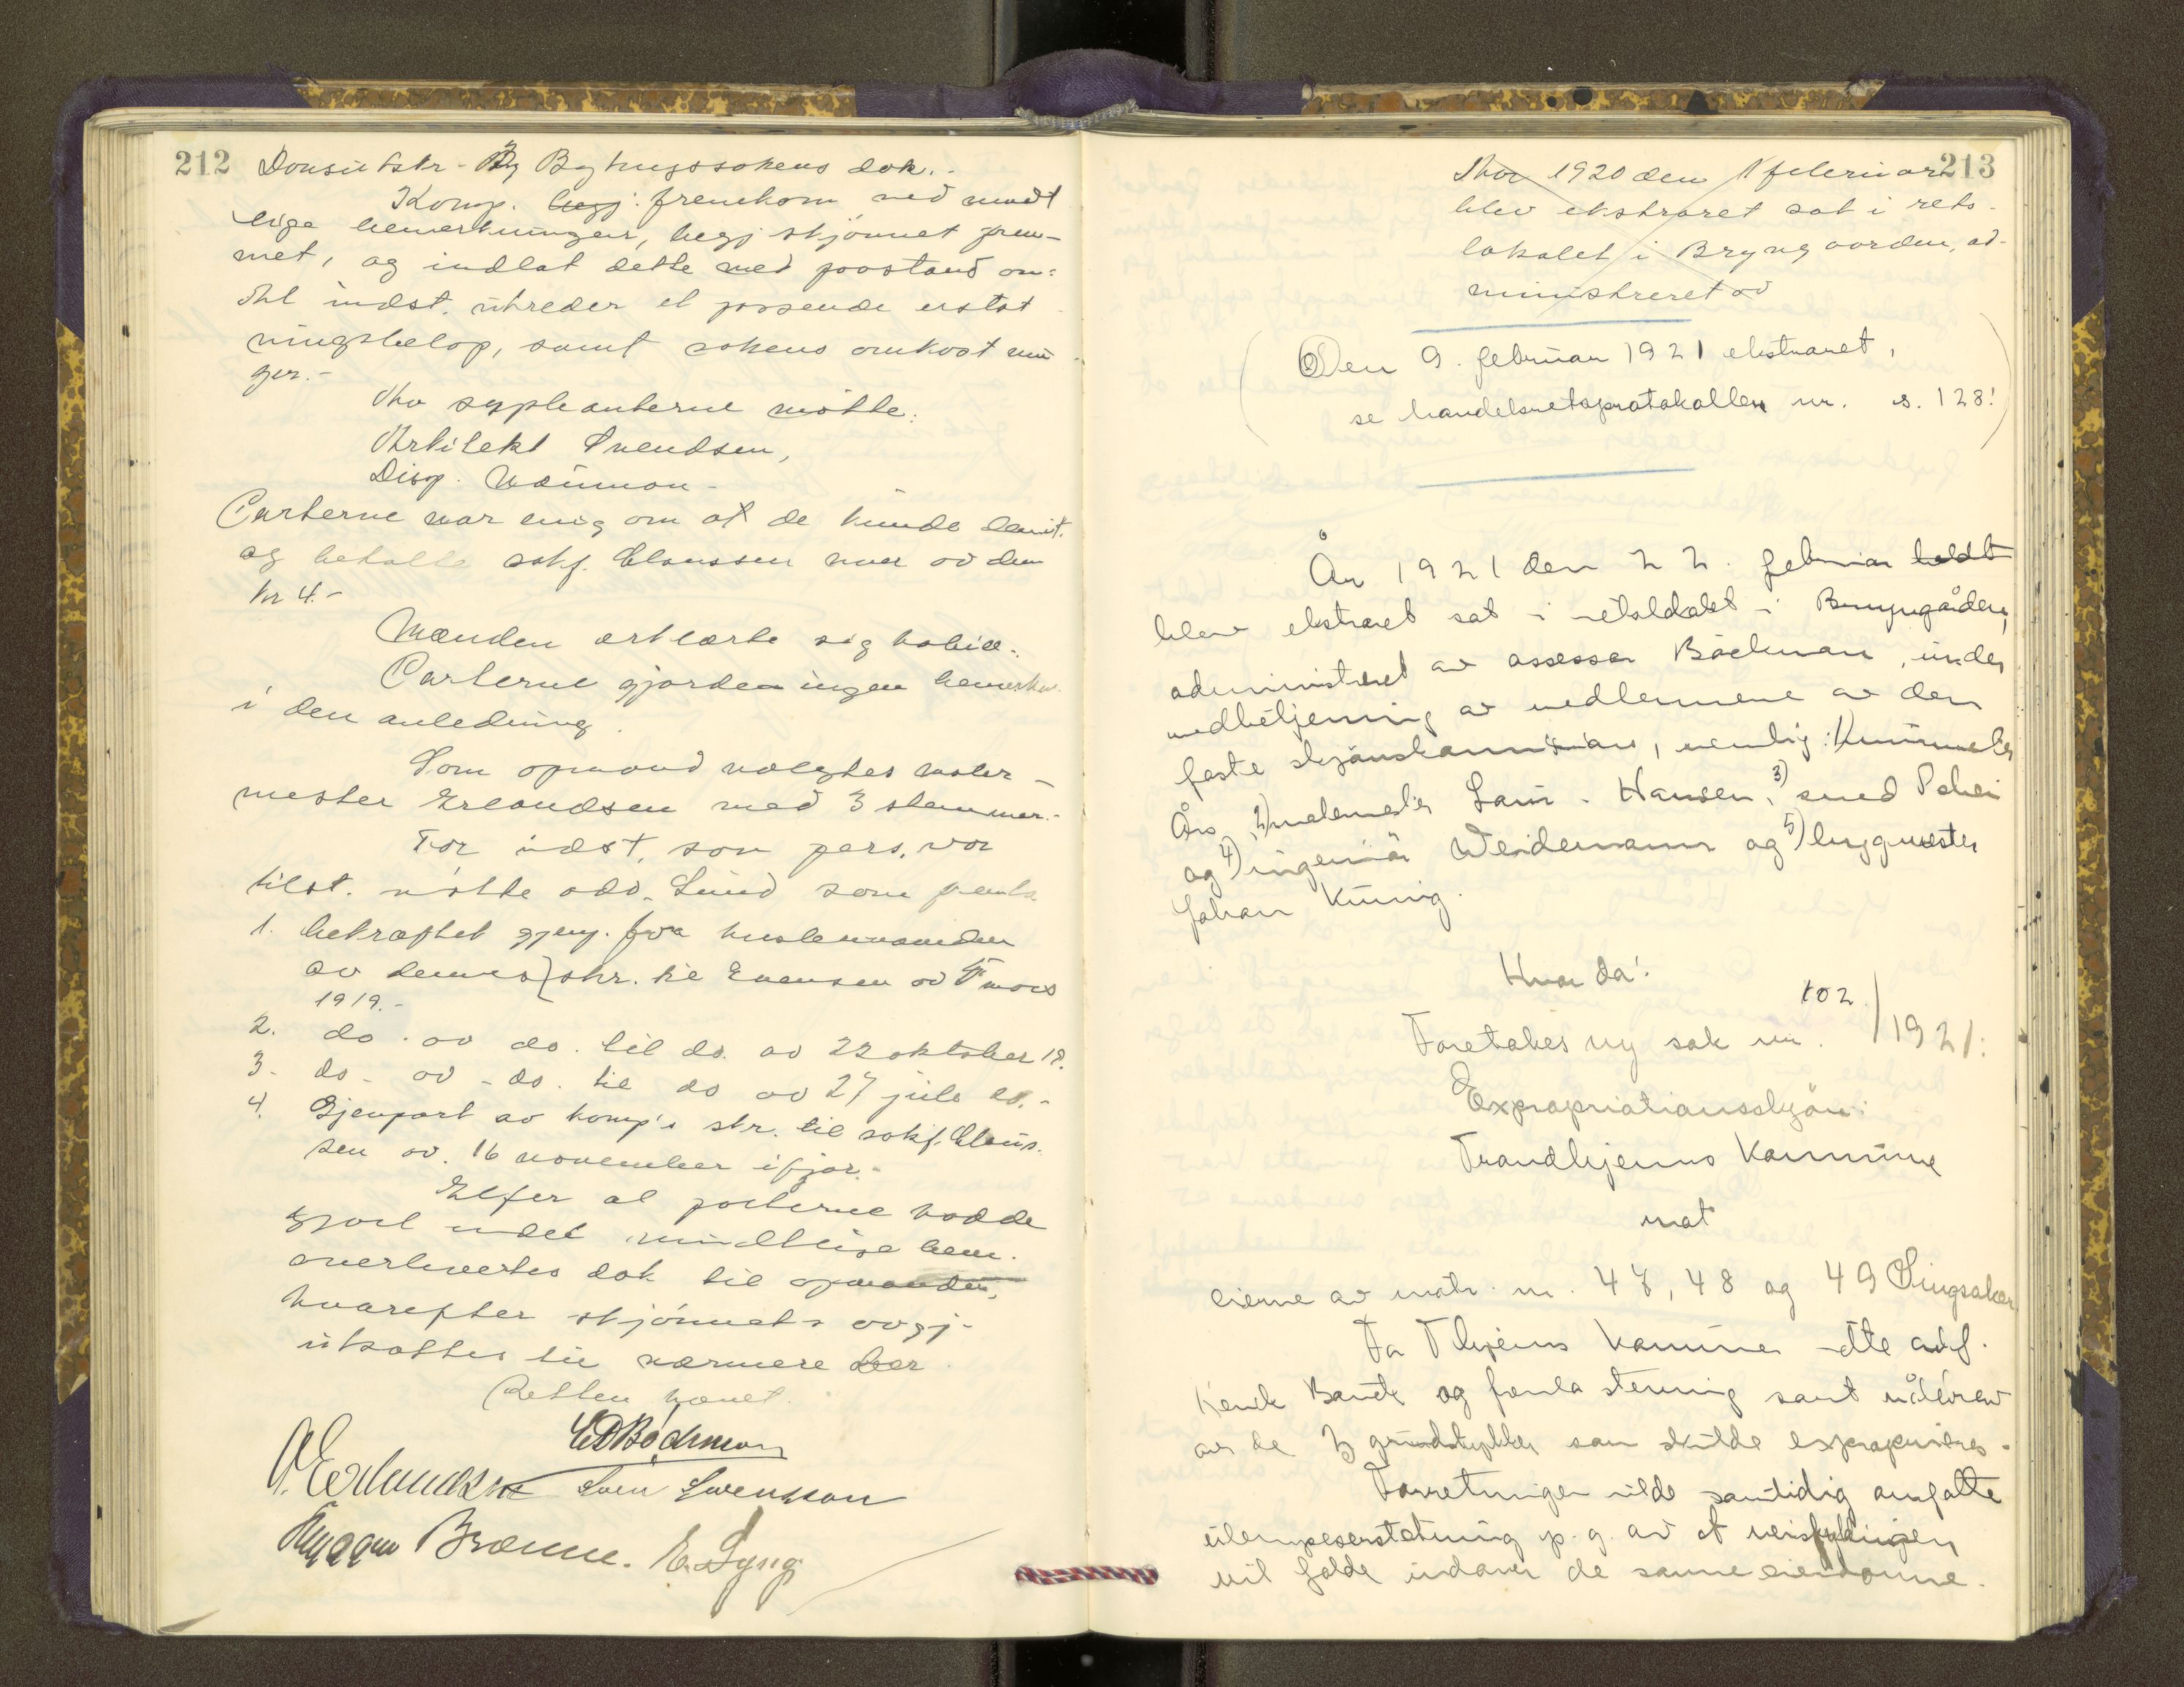 212
Komp. begj. fremkom med mundt
lige bemerkninger, begj skjønnet frem-
met, og indlot dette med paastand om:
At indst. utreder et passende erstat
ningsbeløp, samt sakens omkostnin
ger.-
Av supleanterne møtte:
Arkitekt Svendsen,
Disp.
Parterne var enig om at de kunde demit.
og beholde sakf. Claussen mer av dem
kr 4.-
Mænden erklærte sig habile.
Parterne gjorde ingen bemerkn.
i den anledning.
Som opmand valgtes maler-
mester Erlandsen med 3 stemmer.-
For indst. som pers. var
tilst. møtte adv. Lund som freml.
1. bekræftet gjenp. fra husleienævnden
av dennes skr. til Evensen av 5 mars
1919.-
2. do. av do. til do. av 22 oktober 19.
3. do. av do. til do av 27 juli 20.-
4. Gjenpart av komp's skr. til sakf. Claus-
sen av 16 november ifjor.-
Efter at parterne hadde
gjort endel mundtlige bem.
overlevertes dok til opmanden,
hvorefter skjønnets avgj-
utsattes til nærmere ber.
Retten hævet.
E D Bødtman
A. Erlandsen Sven Svensson
Bræmne. E. Lyng
213
Aar 1920 den 1 februar
blev ekstraret sat i rets-
lokalet i Bryngaarden, ad-
ministreret av
(Den 9. februar 1921 ekstraret,
se handelsretsprotokollen nr. s. 128!)
År 1921 den 22. februar holdt
blev ekstraret sat i retslokalet i Bryngården,
administreret av assessor Bäckman, under
medbetjening av medlemmene av den
faste skjønskommission, nemlig:
Ås, 2) malermester Laur. Hansen, 3) smed
og 4) ingeniør Weidemann og 5) bygmester
Johan König.
Hvor da:
Foretokes ny sak nr. 102/1921:
Expropriationsskjøn:
Trondhjems Kommune
mot
eierne av matr. nr. 47, 48 og 49 Singsaker
For Thjems Kommune møtte adf.
og fremla stevning samt
av de 3 grundstykker som skulde exproprieres.
Forretningen vilde samtidig omfatte
ulempeserstatning p. g. av at veisfyldingen
vil falde indover de samme eiendomme.